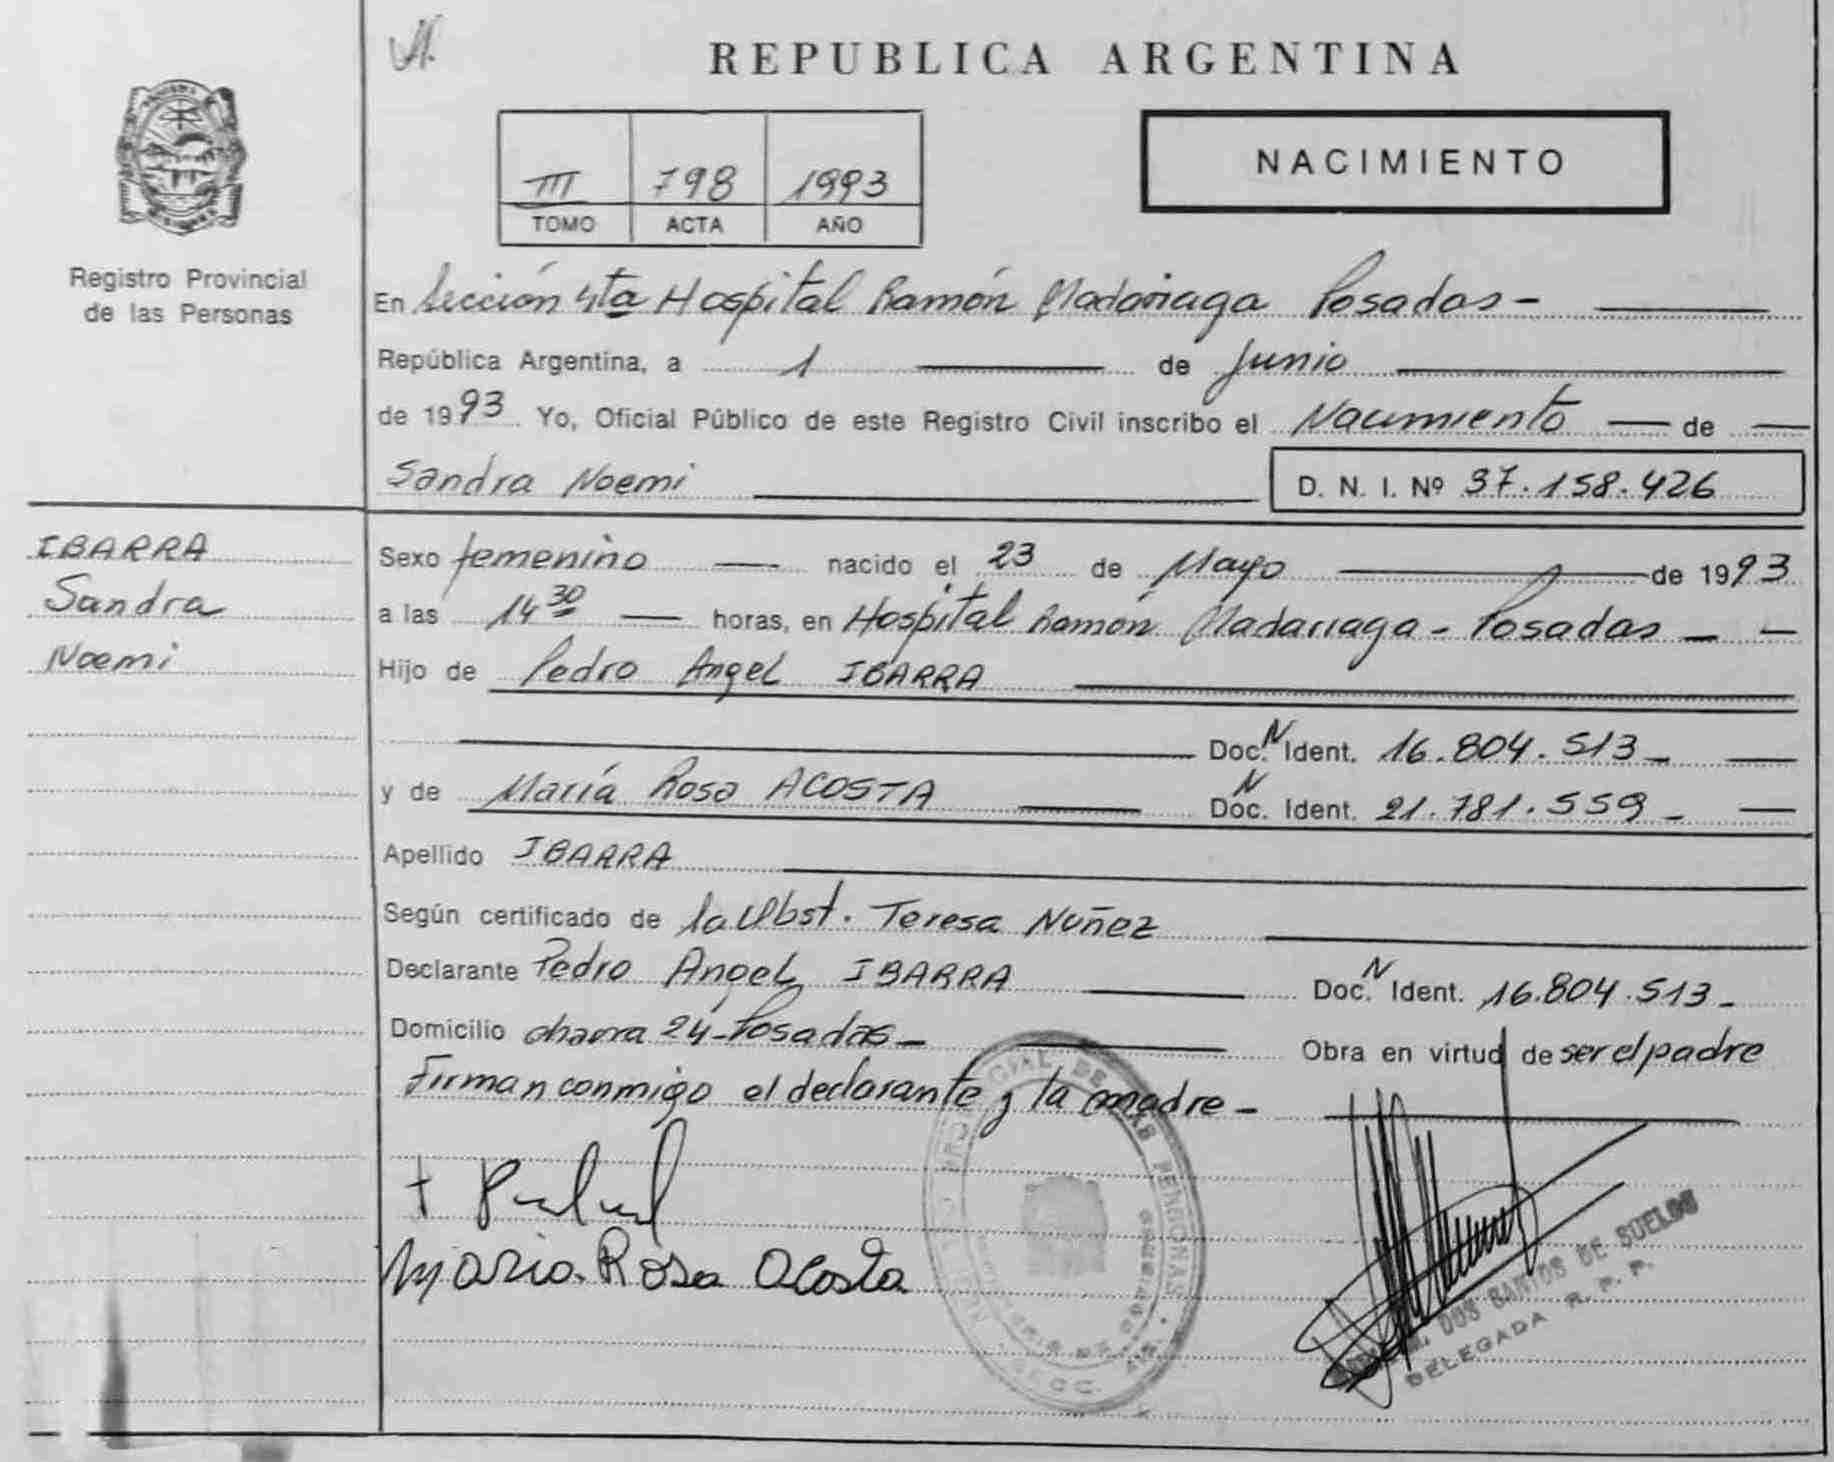 REPUBLICA ARGENTINA
III 798 1993
TOMO ACTA AÑO
NACIMIENTO
Registro Provincial
de las Personas
En Sección 4ta Hospital Ramón Madariaga Posadas-
República Argentina, a 1 de Junio
de 1993 Yo, Oficial Público de este Registro Civil inscribo el Nacimiento de
Sandra Noemi D. N. I. Nº 37.158.426
IBARRA
Sandra
Noemi
Sexo femenino nacido el 23 de Mayo de 1993
a las 14 30 horas, en Hospital Ramón Madariaga - Posadas
Hijo de Pedro Angel IBARRA
Doc. N Ident. 16.804.513
y de María Rosa ACOSTA Doc. N Ident. 21.781.559
Apellido IBARRA
Según certificado de la Obst. Teresa Nuñez
Declarante Pedro Angel IBARRA Doc. N Ident. 16.804.513
Domicilio chacra 24-Posadas Obra en virtud de ser el padre
Firman conmigo el declarante y la madre
Maria Rosa Acosta
DOS SANTOS DE SUELOS
DELEGADA R. P. P.